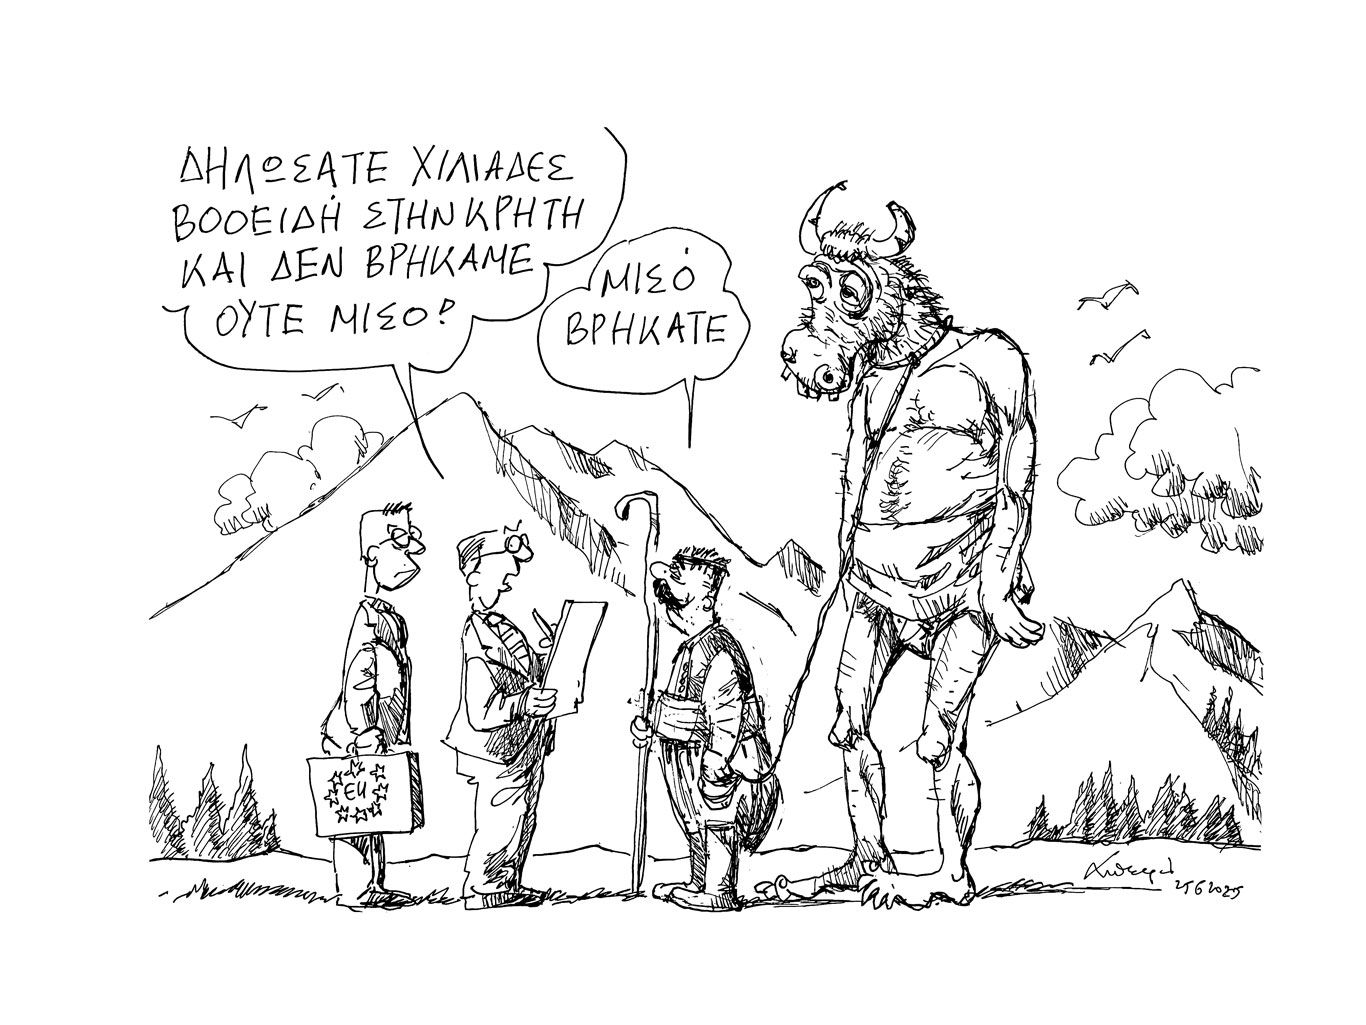 ΔΗΛΩΣΑΤΕ ΧΙΛΙΑΔΕΣ
ΒΟΟΕΙΔΉ ΣΤΗΝ ΚΡΗΤΗ
ΚΑΙ ΔΕΝ ΒΡΗΚΑΜΕ
ΟΥΤΕ ΜΙΣΟ!
ΜΙΣΌ
ΒΡΗΚΑΤΕ
EU
25 6 2025